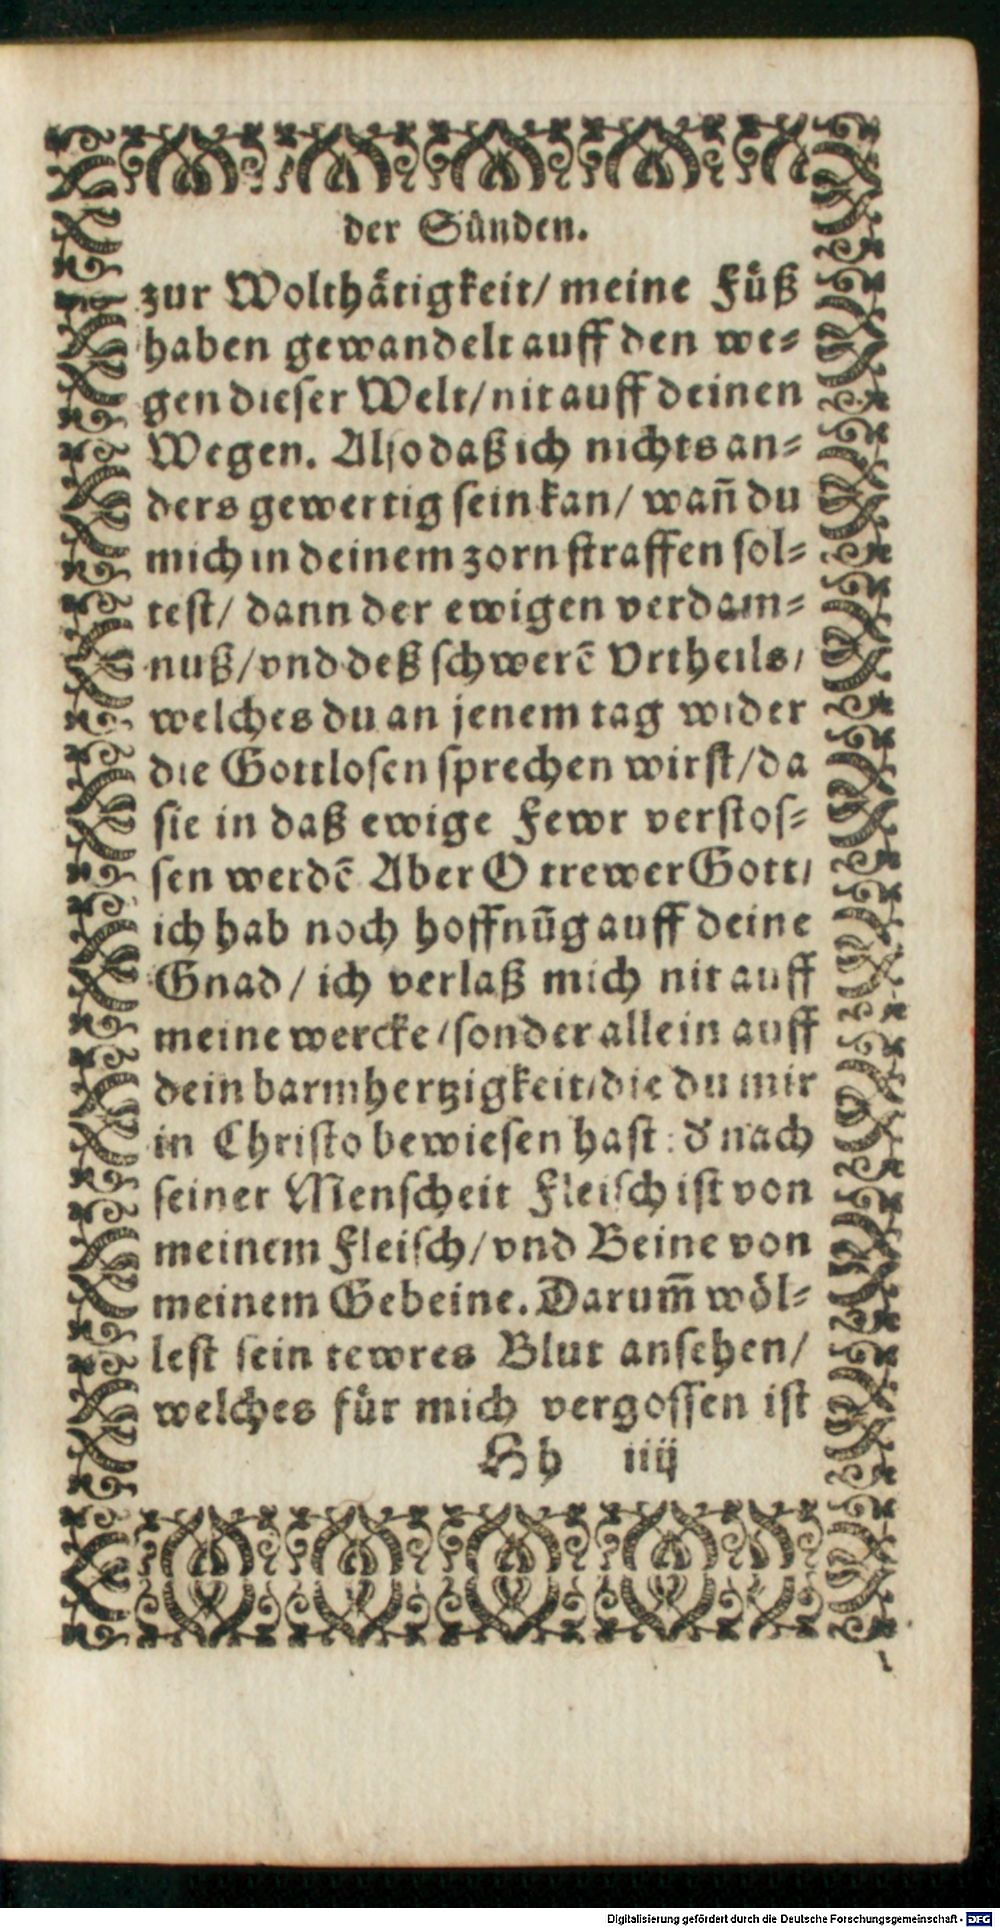 der Sünden.
zur Wolthätigkeit/ meine Füß
haben gewandelt auff den we-
gen dieser Welt/ nit auff deinen
Wegen. Also daß ich nichts an-
ders gewertig sein kan/ wañ du
mich in deinem zorn straffen sol-
test/ dann der ewigen verdam-
nuß/ vnd deß schwerē Vrtheils/
welches du an jenem tag wider
die Gottlosen sprechen wirst/ da
sie in daß ewige Fewr verstos-
sen werdē Aber O trewer Gott/
ich hab noch hoffnūg auff deine
Gnad/ ich verlaß mich nit auff
meine wercke/ sonder allein auff
dein barmhertzigkeit/ die du mir
in Christo bewiesen hast: d' nach
seiner Menscheit Fleisch ist von
meinem Fleisch/ vnd Beine von
meinem Gebeine. Darum̄ wöl-
lest sein tewres Blut ansehen/
welches für mich vergossen ist
Hh iiij
Digitalisierung gefördert durch die Deutsche Forschungsgemeinschaft - DFG